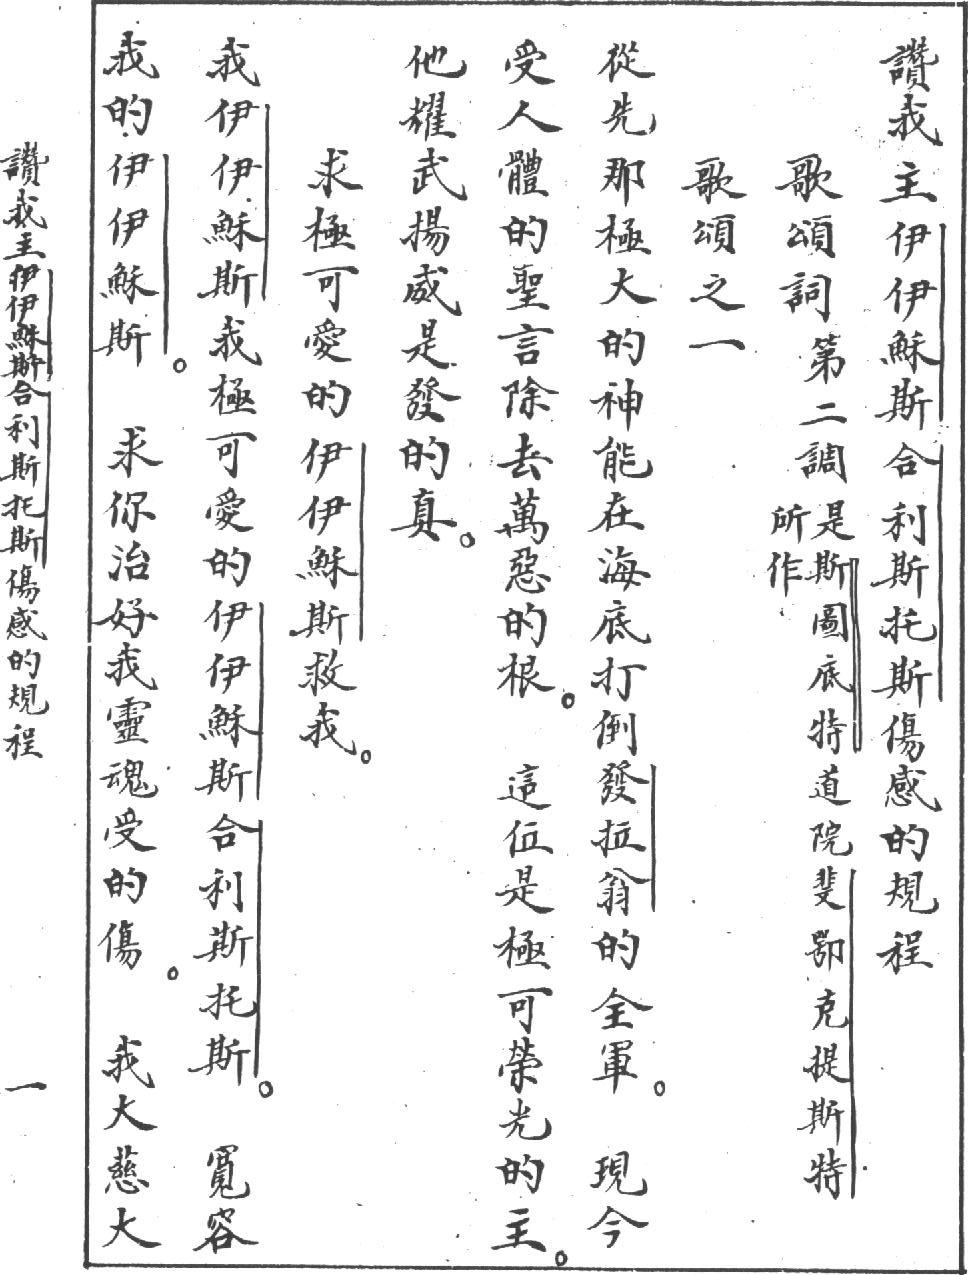 讚我主伊伊穌斯合利斯托斯傷感的規程
歌頌詞第二調是斯圖底特道院斐鄂克提斯特所作
歌頌之一
從先那極大的神能在海底打倒發拉翁的全軍。 現今
受人體的聖言除去萬惡的根。 這位是極可榮光的主。
他耀武揚威是發的真。
求極可愛的伊伊穌斯救我。
我伊伊穌斯我極可愛的伊伊穌斯合利斯托斯。 寬容
我的伊伊穌斯。 求你治好我靈魂受的傷。 我大慈大
讚我主伊伊穌斯合利斯托斯傷感的規程 一